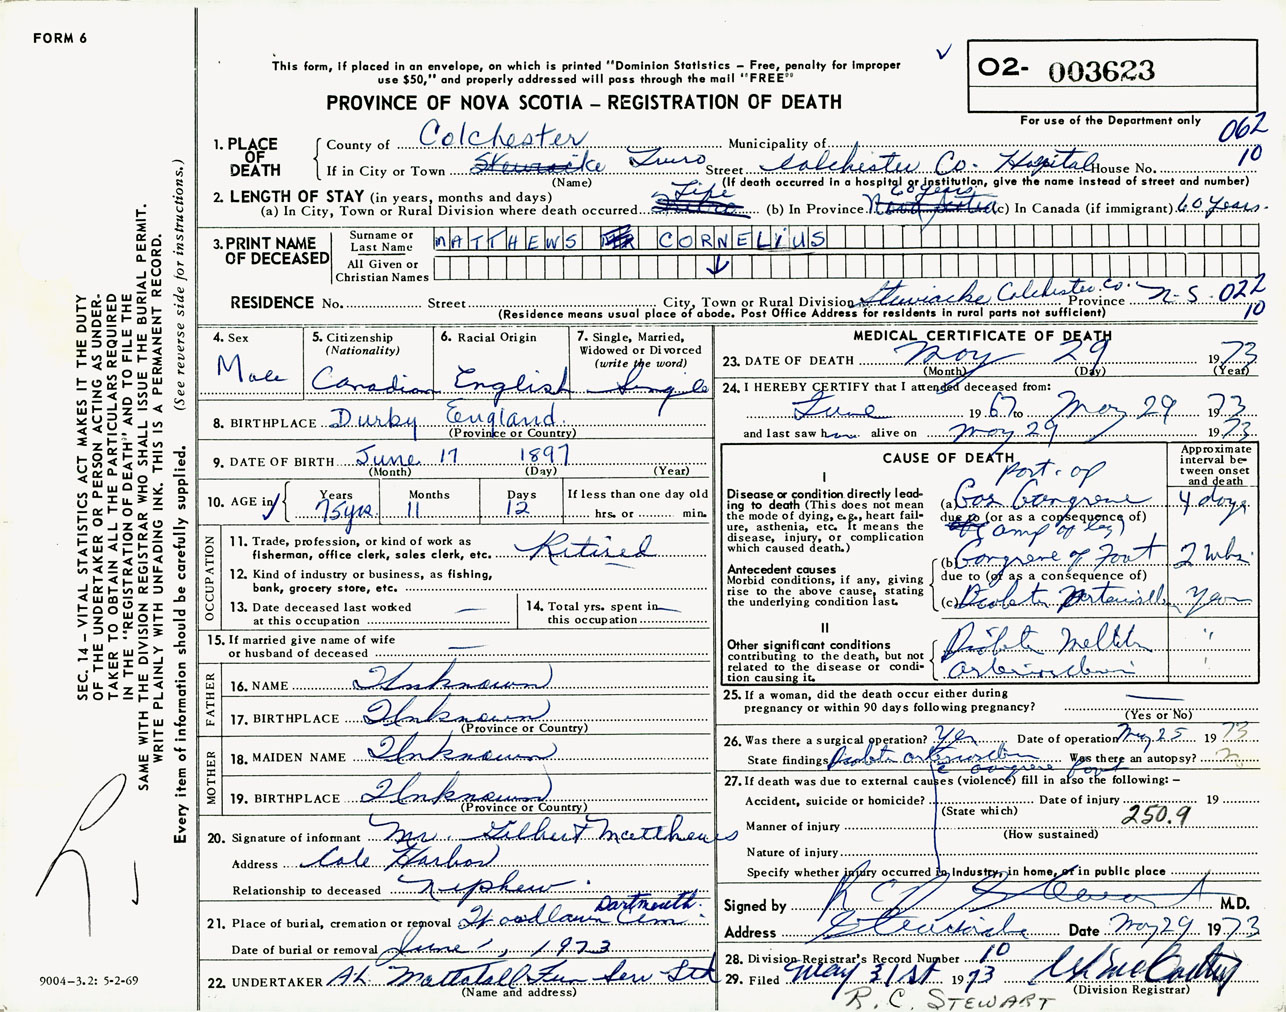 FORM 6
This form, if placed in an envelope, on which is printed "Dominion Statistics – Free, penalty for improper
use $50," and properly addressed will pass through the mail "FREE"
O2- 003623
PROVINCE OF NOVA SCOTIA – REGISTRATION OF DEATH
For use of the Department only
062
10
1. PLACE OF DEATH
County of Colchester Municipality of
If in City or Town Stewiacke Truro Street Colchester Co. Hospital House No.
(Name) (If death occurred in a hospital or institution, give the name instead of street and number)
2. LENGTH OF STAY (in years, months and days)
(a) In City, Town or Rural Division where death occurred Life (b) In Province 60 years Nova Scotia (c) In Canada (if immigrant) 60 years.
3. PRINT NAME OF DECEASED
Surname or Last Name MATTHEWS CORNELIUS
All Given or Christian Names
RESIDENCE No. Street City, Town or Rural Division Stewiacke Colchester Co. Province N-S. 022
10
(Residence means usual place of abode. Post Office Address for residents in rural parts not sufficient)
4. Sex
Male
5. Citizenship
(Nationality)
Canadian
6. Racial Origin
English
7. Single, Married,
Widowed or Divorced
(write the word)
Single
8. BIRTHPLACE Durby England.
(Province or Country)
9. DATE OF BIRTH June 17 1897
(Month) (Day) (Year)
10. AGE in
Years Months Days If less than one day old
75yrs. 11 12 hrs. or min.
OCCUPATION
11. Trade, profession, or kind of work as
fisherman, office clerk, sales clerk, etc. Retired
12. Kind of industry or business, as fishing,
bank, grocery store, etc.
13. Date deceased last worked
at this occupation —
14. Total yrs. spent in
this occupation —
15. If married give name of wife
or husband of deceased —
FATHER
16. NAME Unknown
17. BIRTHPLACE Unknown
(Province or Country)
MOTHER
18. MAIDEN NAME Unknown
19. BIRTHPLACE Unknown
(Province or Country)
20. Signature of informant Mr. Gilbert Matthews
Address Cole Harbor
Relationship to deceased Nephew.
21. Place of burial, cremation or removal Woodlawn Cem. Dartmouth.
Date of burial or removal June 1, 1973
22. UNDERTAKER Mattatall Fun Serv Ltd
(Name and address)
MEDICAL CERTIFICATE OF DEATH
23. DATE OF DEATH May 29 1973
(Month) (Day) (Year)
24. I HEREBY CERTIFY that I attended deceased from:
June 1967 to May 29 1973
and last saw him alive on May 29 1973
CAUSE OF DEATH
Approximate interval between onset and death
I
Disease or condition directly leading to death (This does not mean the mode of dying, e.g., heart failure, asthenia, etc. It means the disease, injury, or complication which caused death.)
Port-op
(a) Gas Gangrene 4 days
due to (or as a consequence of)
(amp of leg)
Antecedent causes
Morbid conditions, if any, giving rise to the above cause, stating the underlying condition last.
(b) Gangrene of Foot 2 wks.
due to (or as a consequence of)
(c) Diabetic
II
Other significant conditions
contributing to the death, but not related to the disease or condition causing it.
Diabetes Mellitus "
"
25. If a woman, did the death occur either during
pregnancy or within 90 days following pregnancy? —
(Yes or No)
26. Was there a surgical operation? Yes Date of operation May 25 1973
State findings Was there an autopsy?
gangrene foot
27. If death was due to external causes (violence) fill in also the following: –
Accident, suicide or homicide? Date of injury 19
(State which) 250.9
Manner of injury
(How sustained)
Nature of injury
Specify whether injury occurred in Industry, in home, or in public place
Signed by R C Stewart M.D.
Address Stewiacke Date May 29 1973
28. Division Registrar's Record Number 10
29. Filed May 31st 1973
(Division Registrar)
R. C. STEWART
SEC. 14 – VITAL STATISTICS ACT MAKES IT THE DUTY
OF THE UNDERTAKER OR PERSON ACTING AS UNDER-
TAKER TO OBTAIN ALL THE PARTICULARS REQUIRED
IN THE "REGISTRATION OF DEATH" AND TO FILE THE
SAME WITH THE DIVISION REGISTRAR WHO SHALL ISSUE THE BURIAL PERMIT.
WRITE PLAINLY WITH UNFADING INK. THIS IS A PERMANENT RECORD.
Every item of information should be carefully supplied. (See reverse side for instructions.)
9004–3.2: 5-2-69